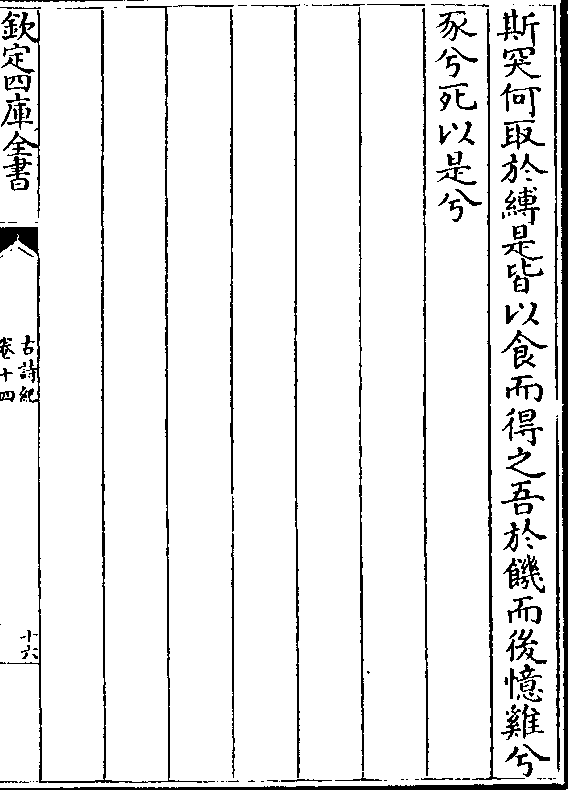 斯突何取於縛是皆以食而得之吾於饑而後憶雞兮
豕兮死以是兮
欽定四庫全書
古詩紀
卷十四
十六